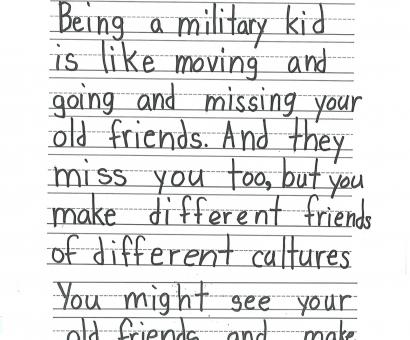 Being a military kid
is like moving and
going and missing your
old friends. And they
miss you too, but you
make different friends
of different cultures
You might see your
old friends and make